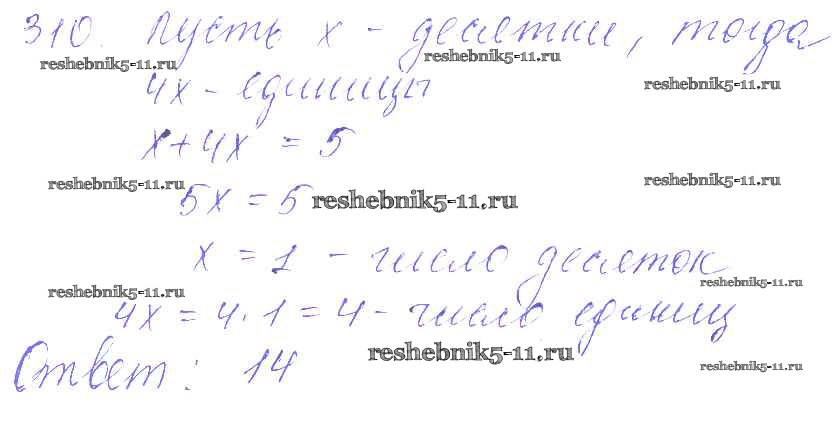 310. Пусть x - десятки, тогда
reshebnik5-11.ru reshebnik5-11.ru
4x - единицы reshebnik5-11.ru
x+4x = 5
reshebnik5-11.ru reshebnik5-11.ru
5x = 5 reshebnik5-11.ru
x = 1 - число десяток
reshebnik5-11.ru reshebnik5-11.ru
4x = 4·1 = 4 - число единиц
reshebnik5-11.ru reshebnik5-11.ru
Ответ: 14